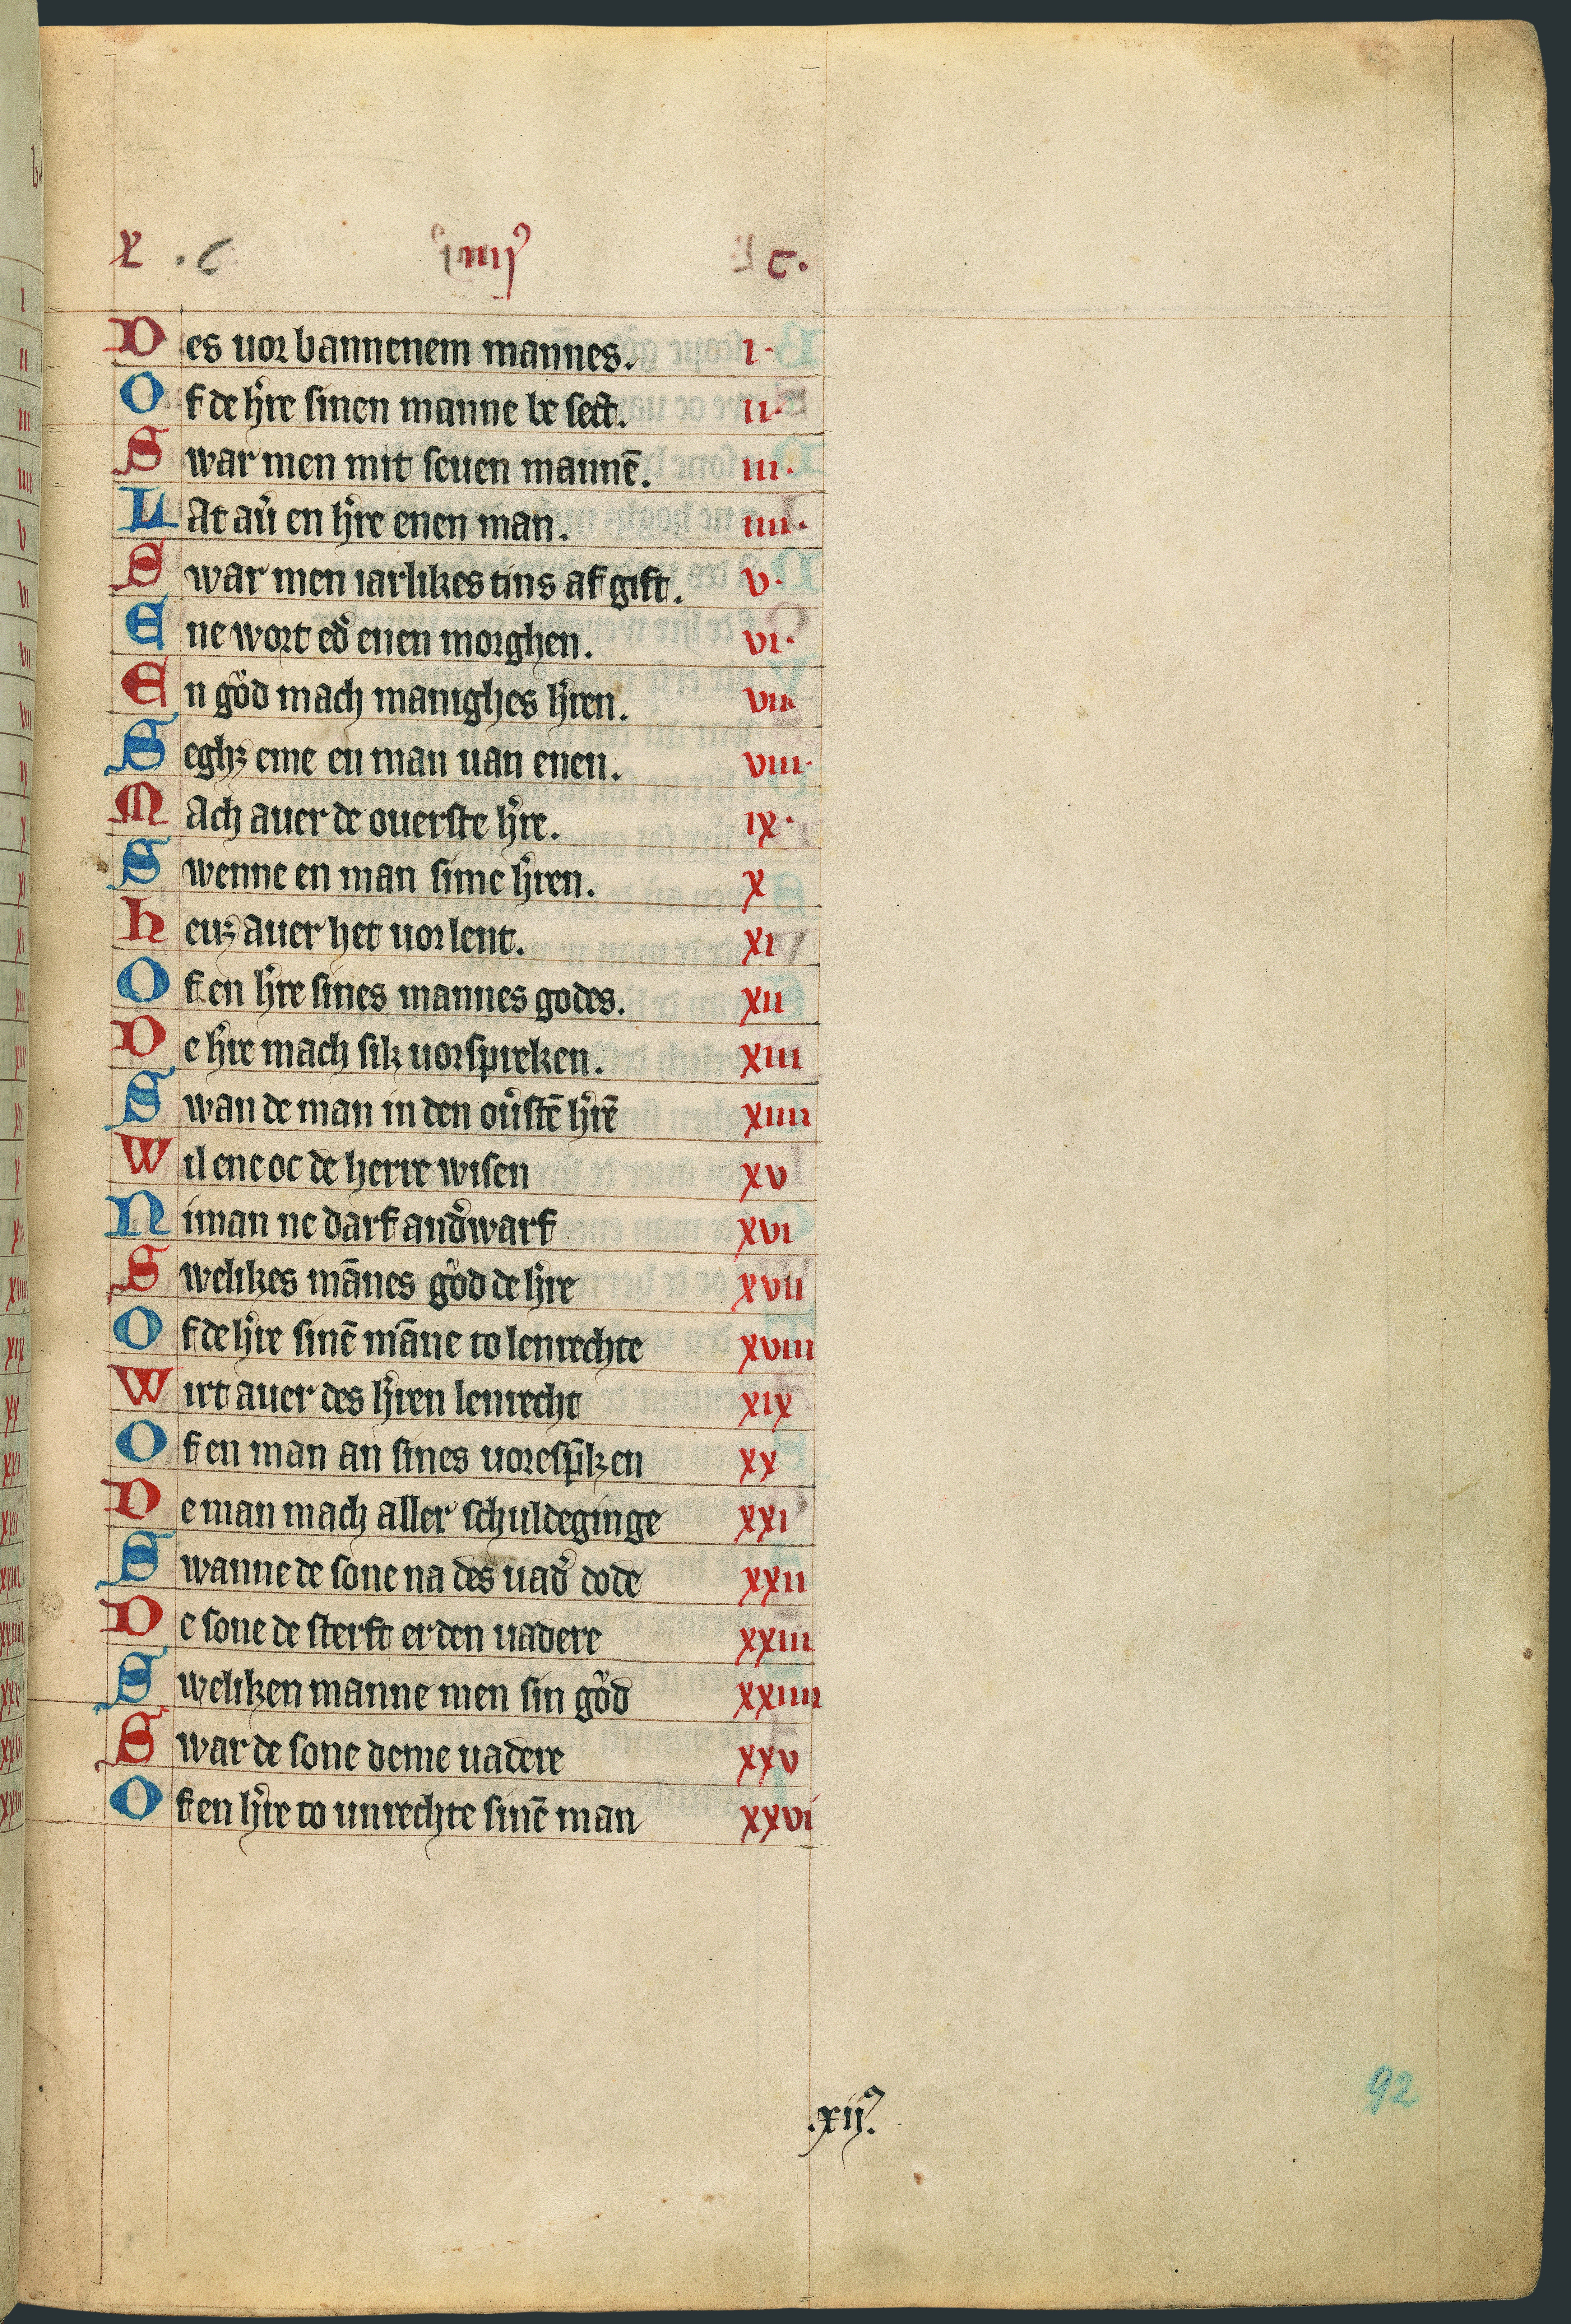 x . c iiij c.
Des uor bannenem mannes. i.
Of de h're sinen manne be sect. ii.
Swar men mit seuen mannē. iii.
LAt au' en h're enen man. iiii.
Swar men iarlikes tins af gift. v.
Ene wort ed' enen morghen. vi.
En gůd mach manighes h'ren. vii
Seghꝫ eme en man uan enen. viii.
MAch auer de ouerste h're. ix.
Swenne en man sime h'ren. x
heuꝫ auer het uor lent. xi
Of en h're sines mannes godes. xii
De h're mach sik uorspreken. xiii
Swan de man in den ou'stē h'rē xiiii
Wil ene oc de herre wisen xv
Niman ne darf and'warf xvi
Swelikes mānes gůd de h're xvii
Of de h're sinē māne to lenrechte xviii
Wirt auer des h'ren lenrecht xix
Of en man an sines uoresp̄ken xx
De man mach aller schuldeginge xxi
Swanne de sone na des uad' dode xxii
De sone de sterft er den uadere xxiii
Sweliken manne men sin gůd xxiiii
Swar de sone deme uadere xxv
Of en h're to unrechte sinē man xxvi
.xij.
92